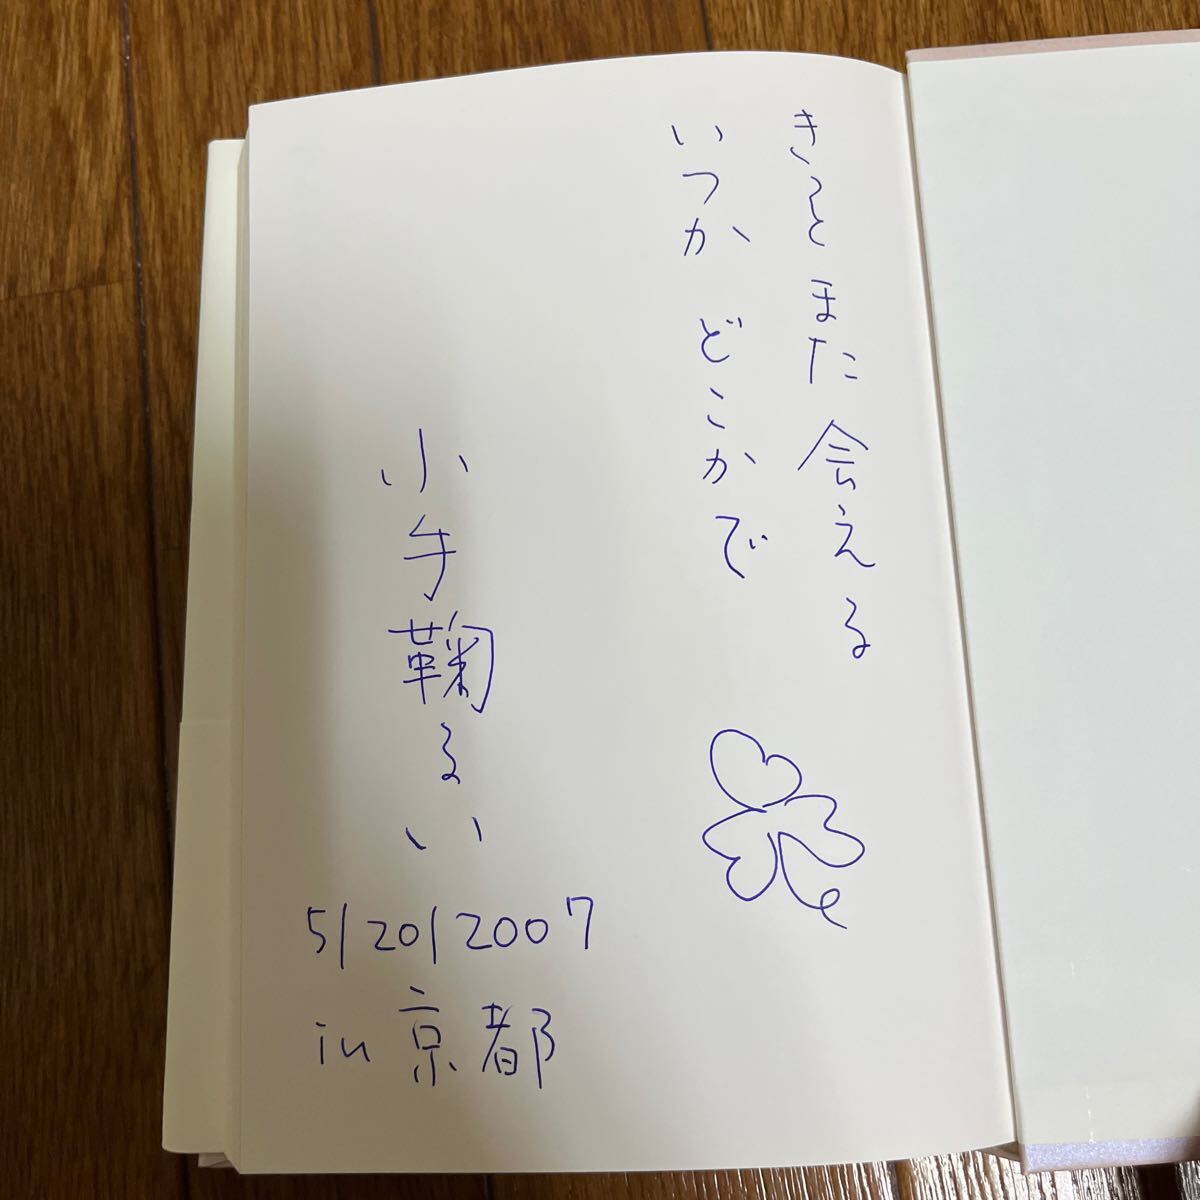 きっとまた会える
いつか どこかで
小手鞠るい
5/20/2007
in 京都